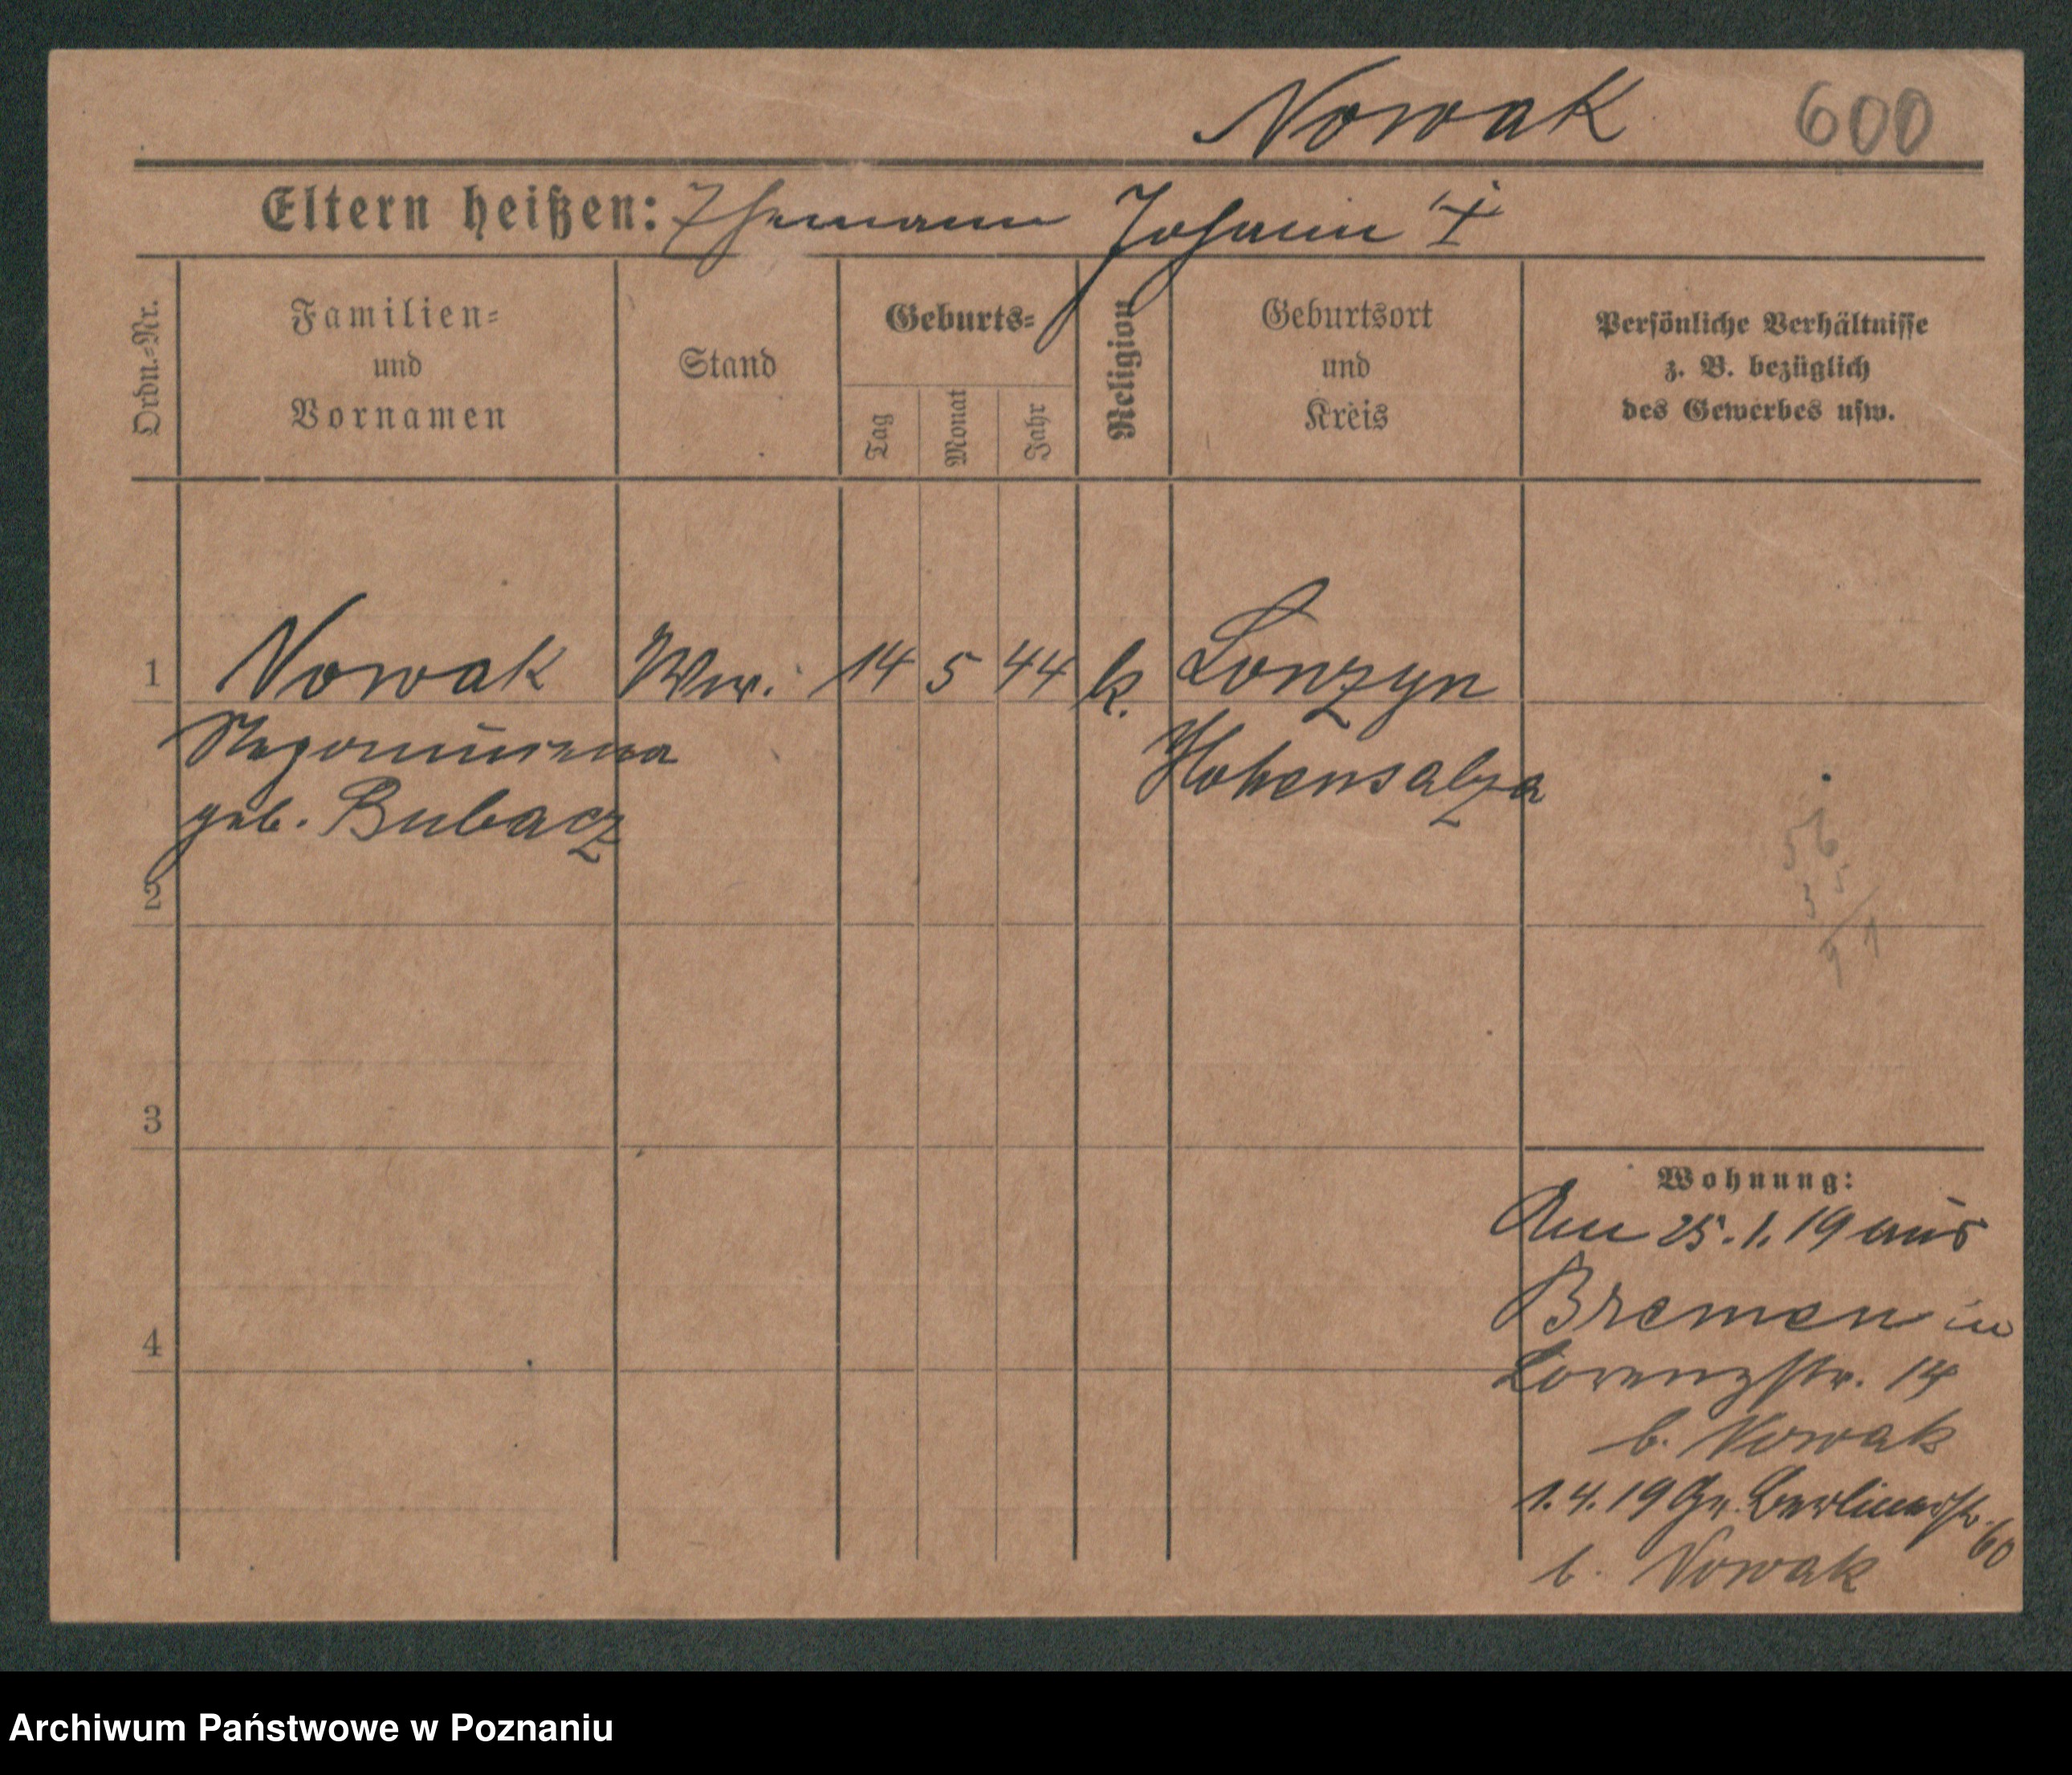 Nowak 600
Eltern heißen: Ehemann Johann †
Ordn.-Nr.
Familien-
und
Vornamen
Stand
Geburts-
Tag
Monat
Jahr
Religion
Geburtsort
und
Kreis
Persönliche Verhältnisse
z. B. bezüglich
des Gewerbes usw.
1 Nowak Ww. 14 5 44 k. Lonzyn
Hohensalza
geb. Bubacz
2
3
4
Wohnung:
Am 25.1.19 aus
Bremen in
Lorenzstr. 14
b. Nowak
1.4.19 Gr. Berlinerstr. 60
b. Nowak
Archiwum Państwowe w Poznaniu